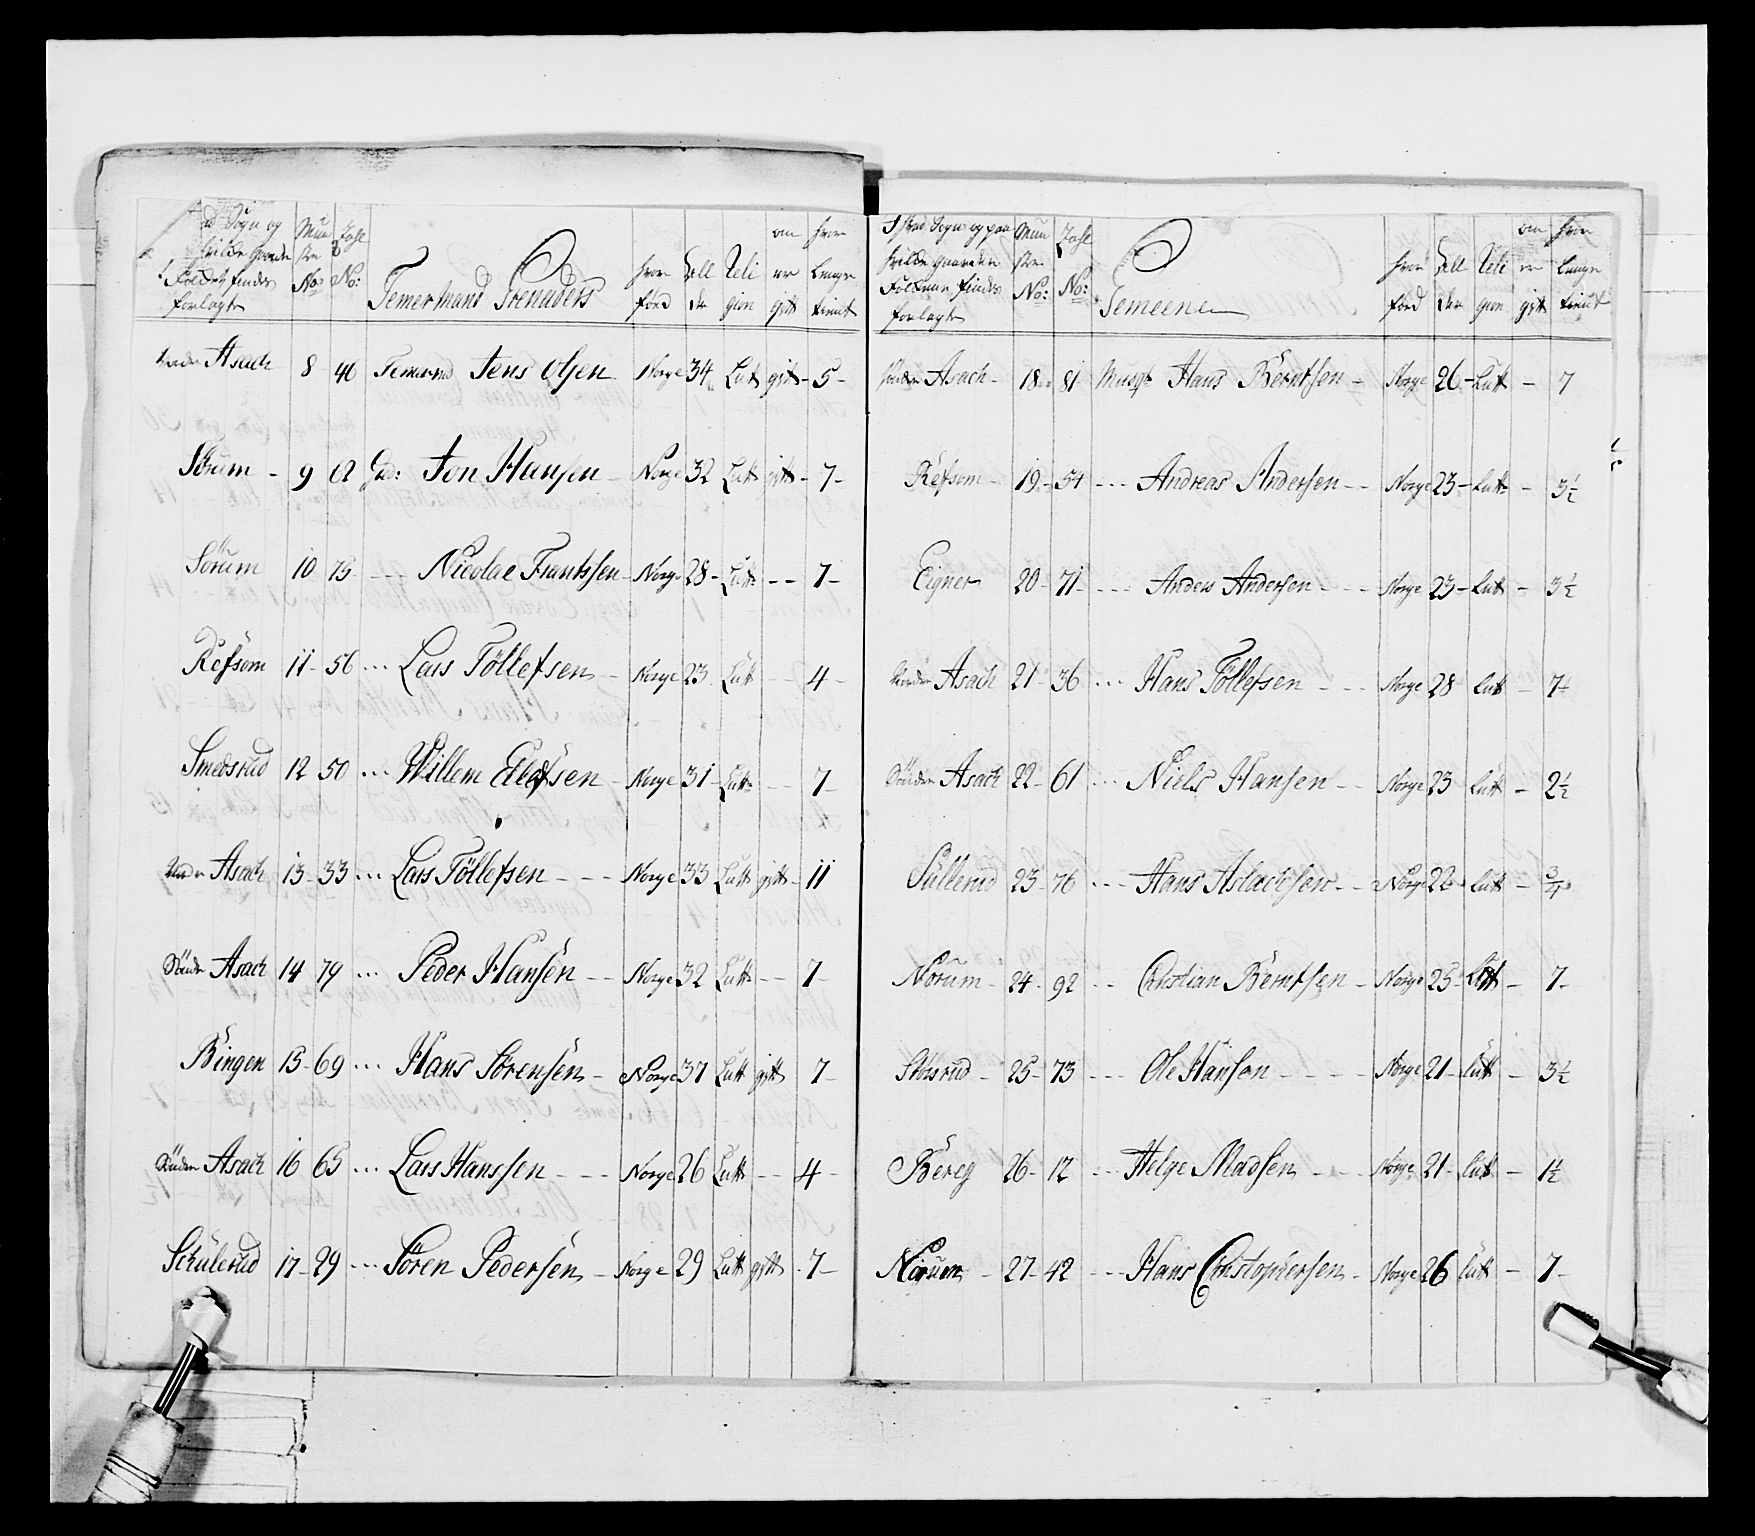 Sogn og
hvilke
findes
forlagt
Mun
stre
No:
Zahl
No:
Temermand Grenaders
hvor
fød
Ell
der
Reli
gion
om
er
gift
hvor
Lenge
tient
Asach 8 40 Temermd Jens Olsen Norge 34 Lutt gift - 5 -
Sörum - 9 62 Grd: Jon Hansen - Norge 32 Lutt gift - 7 -
Sörum 10 75 - - - Nicolae Frantssen - Norge 28 - Lutt - - 7 -
Refsom 11 - 56 - - - Lars Töllefsen - Norge 23 Lutt - - 4 -
Smedsrud 12 - 50 - - - Willem Ellefsen - Norge 31 - Lutt - - 7 -
Asach 13 - 33 - - - Lars Töllefsen - - - Norge 33 Lutt gift - 11
Sönder Asach 14 79 - - - Peder Hansen - - Norge 32 Lutt - - 7 -
Bingen 15 - 69 - - - Hans Sörensen - - Norge 37 Lutt gift 7 -
Sönder Asach 16 65 - - - Lars Hanssen - - - Norge 26 Lutt - - 4 -
Schülerud 17 - 29 - - - Sören Pedersen - Norge 29 Lutt gift - 7 -
Sogn og paa
hvilke gaarder
Folkene findes
forlagt
Mun
stre
No:
Zahl
No:
Gemeene
hvor
fød
Ell
der
Reli
gion
om
er
gift
hvor
Lenge
tient
Asach - 18 - 81 Musqt Hans Berntsen - Norge 26 - Lutt - 7
Refsom - 19 - 54 - - - Andreas Andersen - - Norge 23 - Lutt - 3½
Eigner 20 - 71 - - - - Anders Andersen - - - Norge 23 - Lutt - 3½
Asach 21 - 36 - - - Hans Töllefsen - - - Norge 28 Lutt - 7½
Sönder Asach 22 - 61 - - - Niels Hansen - - Norge 23 Lutt - 2½
Süllerud 23 - 76 - - - Hans Aslachsen - - Norge 22 Lutt - ¾
Norum - 24 - 92 - - Christian Berntsen - Norge 25 - Lutt - 7 -
25 - 73 - - - Ole Hansen - - - - Norge 21 - Lutt - 3½
Bereg 26 - 12 - - - Helge Madsen - - - Norge 21 - Lutt - 1½
Norum - 27 - 42 - - - Hans Christophersen - Norge 26 Lutt - 7 -